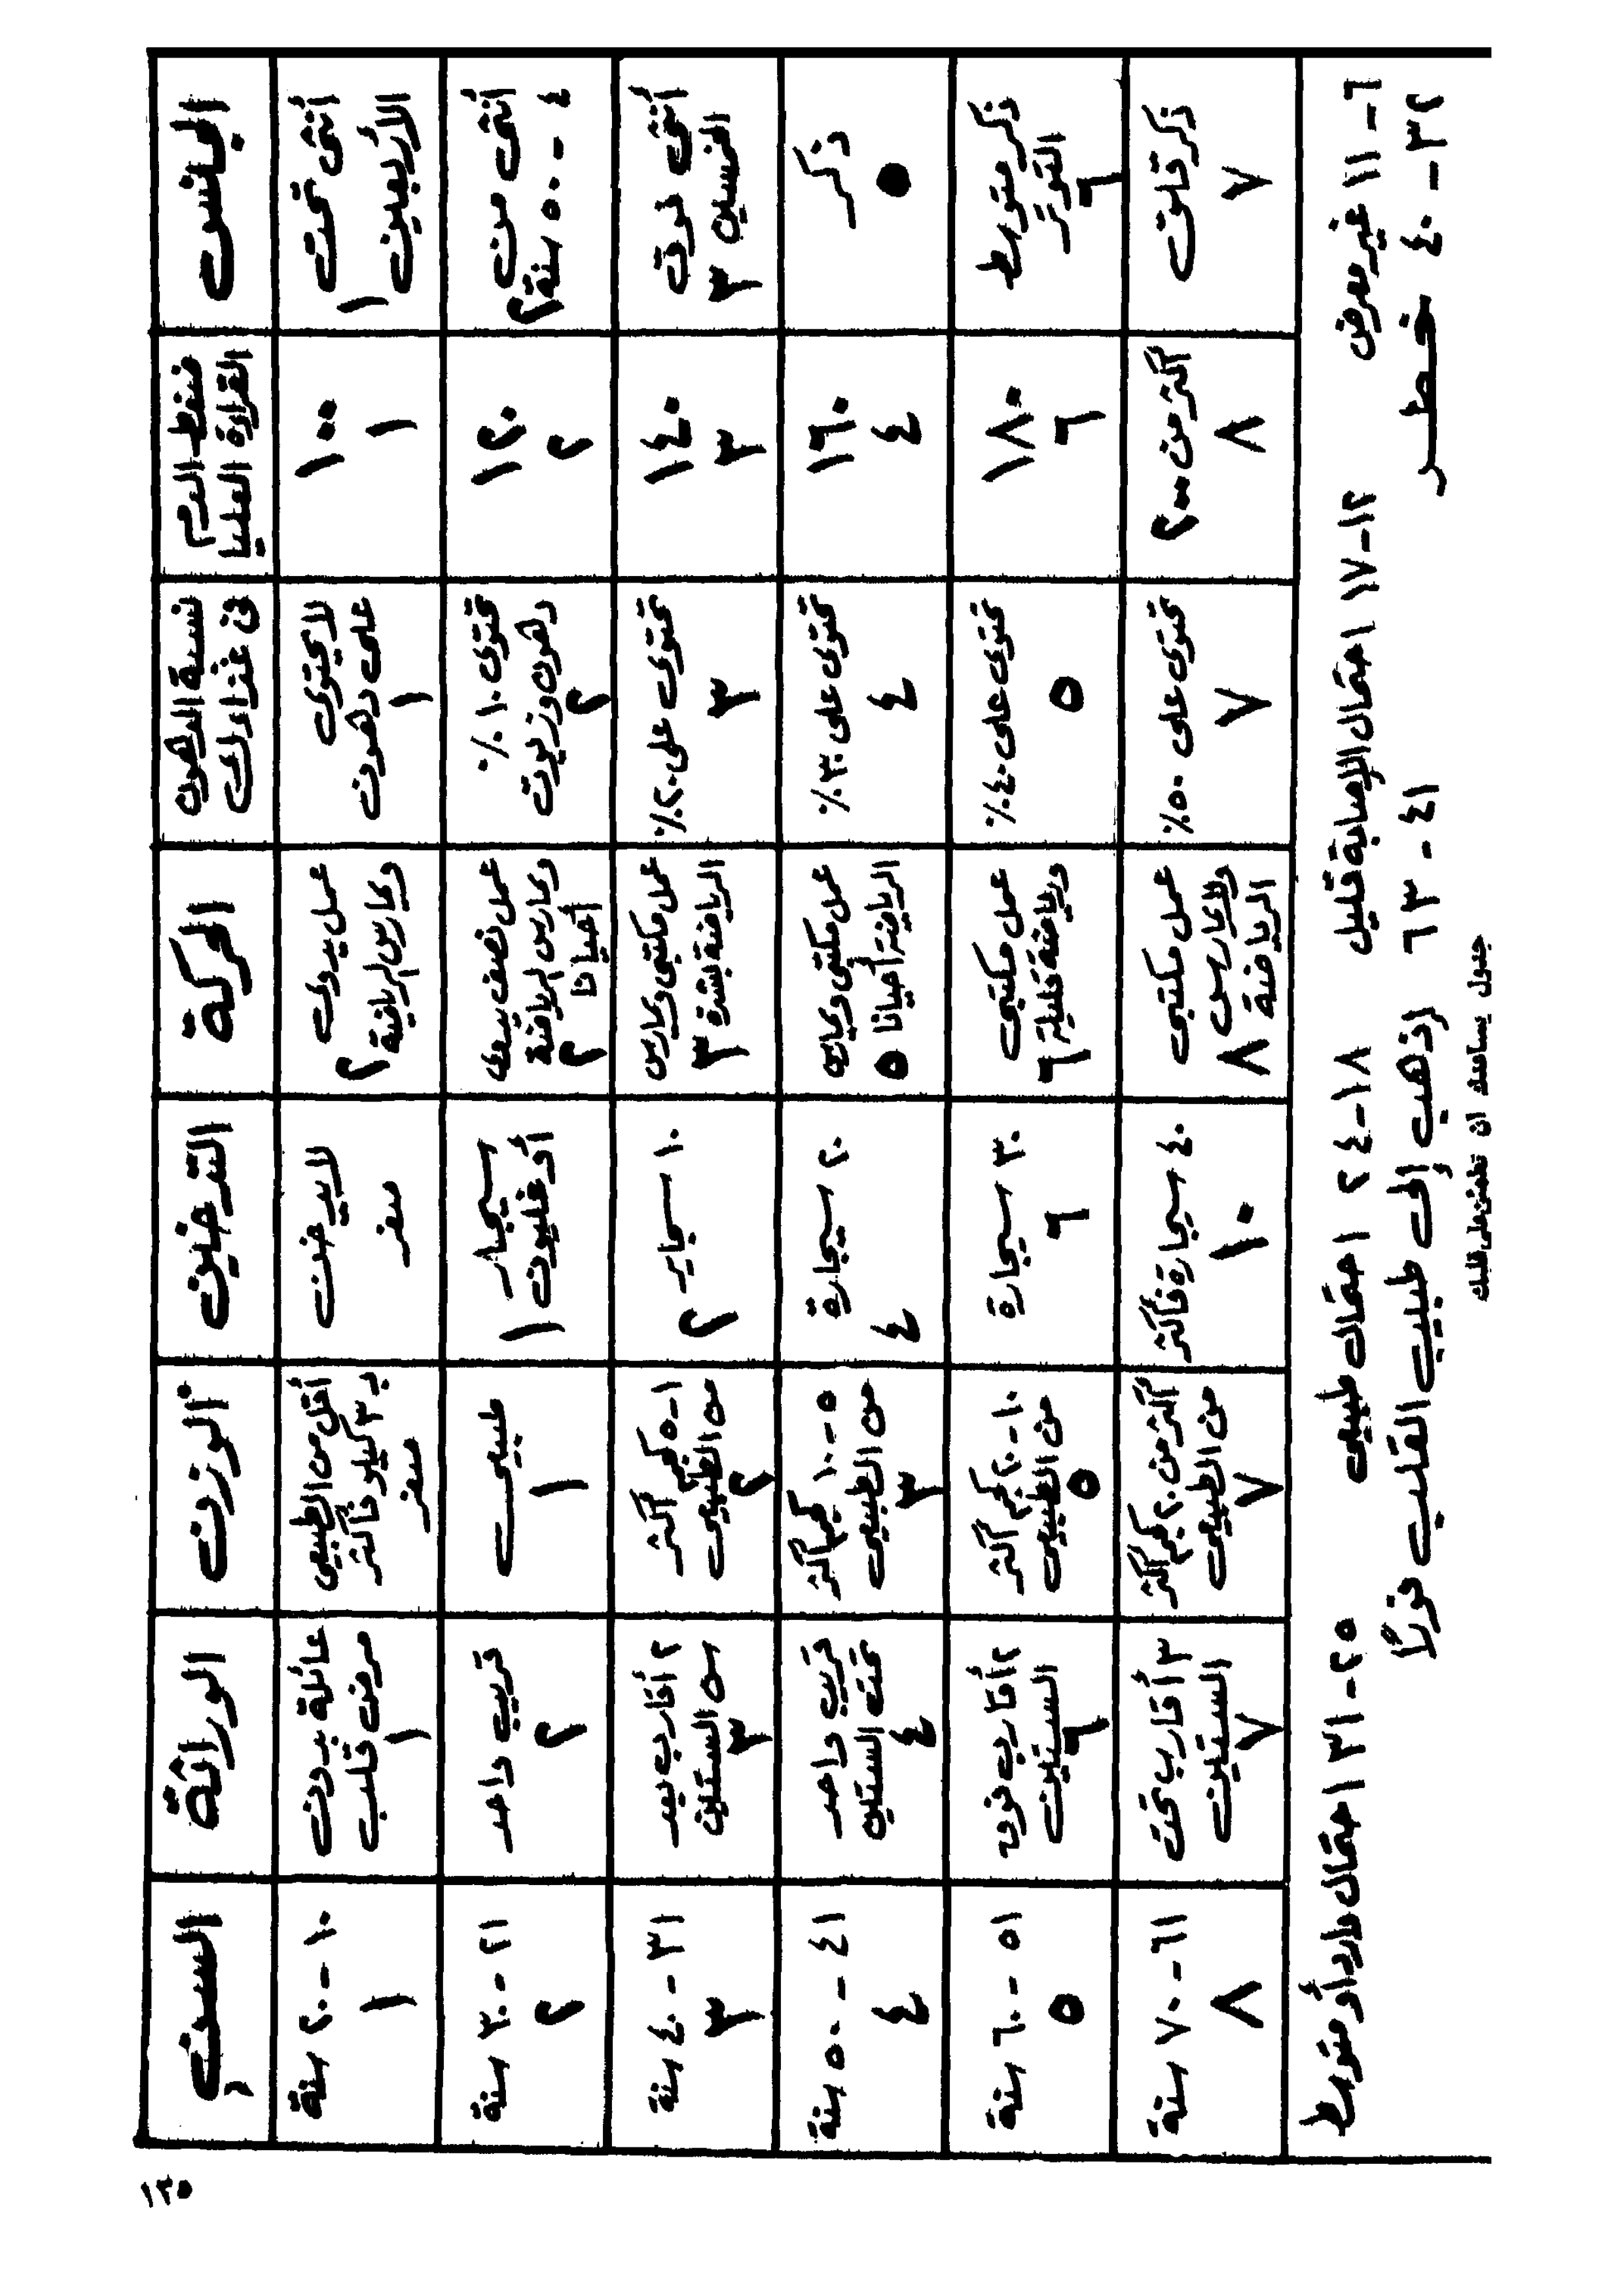 الجنس
ضغط الدم
القراءة العليا
نسبة الدهون
فى غذاءك
الحركة
التدخين
الوزن
الوراثة
السن
أنثى تحت
الأربعين
١
١٠٠
١
لا يحتوى
على دهون
١
عمل يدوى
ويمارس الرياضة
٢
لا يدخن
صفر
أقل من الطبيعى
بـ ٣ كيلو فأكثر
صفر
عائلة بدون
مرض قلب
١
١٠ - ٢٠ سنة
١
أنثى من
٤٠ - ٥٠ سنة
٢
١٢٠
٢
تحتوى ١٠٪
دهون وزيوت
٢
عمل نصف يدوى
ويمارس الرياضة
أحيانا
٢
سيجار
أو غليون
١
طبيعى
١
قريب واحد
٢
٢١ - ٣٠ سنة
٢
أنثى فوق
الخمسين
٣
١٤٠
٣
تحتوى على ٢٠٪
٣
عمل مكتبى ويمارس
الرياضة بشدة
٣
١٠ سجاير
٢
١-٥ كجم أكثر
من الطبيعى
٢
٢ أقارب بعد
سن الستين
٣
٣١ - ٤٠ سنة
٣
ذكر
٥
١٦٠
٤
تحتوى على ٣٠٪
٤
عمل مكتبى ويمارس
الرياضة أحيانا
٥
٢٠ سيجارة
٤
٥-١٠ كجم أكثر
من الطبيعى
٣
قريب واحد
تحت الستين
٤
٤١ - ٥٠ سنة
٤
ذكر متوسط
التوتر
٦
١٨٠
٦
تحتوى على ٤٠٪
٥
عمل مكتبى
ورياضة قليلة
٦
٣٠ سيجارة
٦
١٠-٢٠ كجم أكثر
من الطبيعى
٥
٢ أقارب فوق
الستين
٦
٥١ - ٦٠ سنة
٥
ذكر قلق
٧
أكثر من ٢٠٠
٨
تحتوى على ٥٠٪
٧
عمل مكتبى
ولا يمارس
الرياضة
٨
٤٠ سيجارة فأكثر
١٠
أكثر من ٢٠ كجم أكثر
من الطبيعى
٧
٣ أقارب تحت
الستين
٧
٦١ - ٧٠ سنة
٨
٦ - ١١ غير معرض ١٢-١٧ احتمال الإصابة قليل ١٨-٢٤ احتمال طبيعى ٢٥-٣١ احتمال وارد أو متوسط
٣٢ - ٤٠ خطر ٤١ - ٦٣ إذهب إلى طبيب القلب فورًا
جدول يساعدك ان تطمئن على قلبك